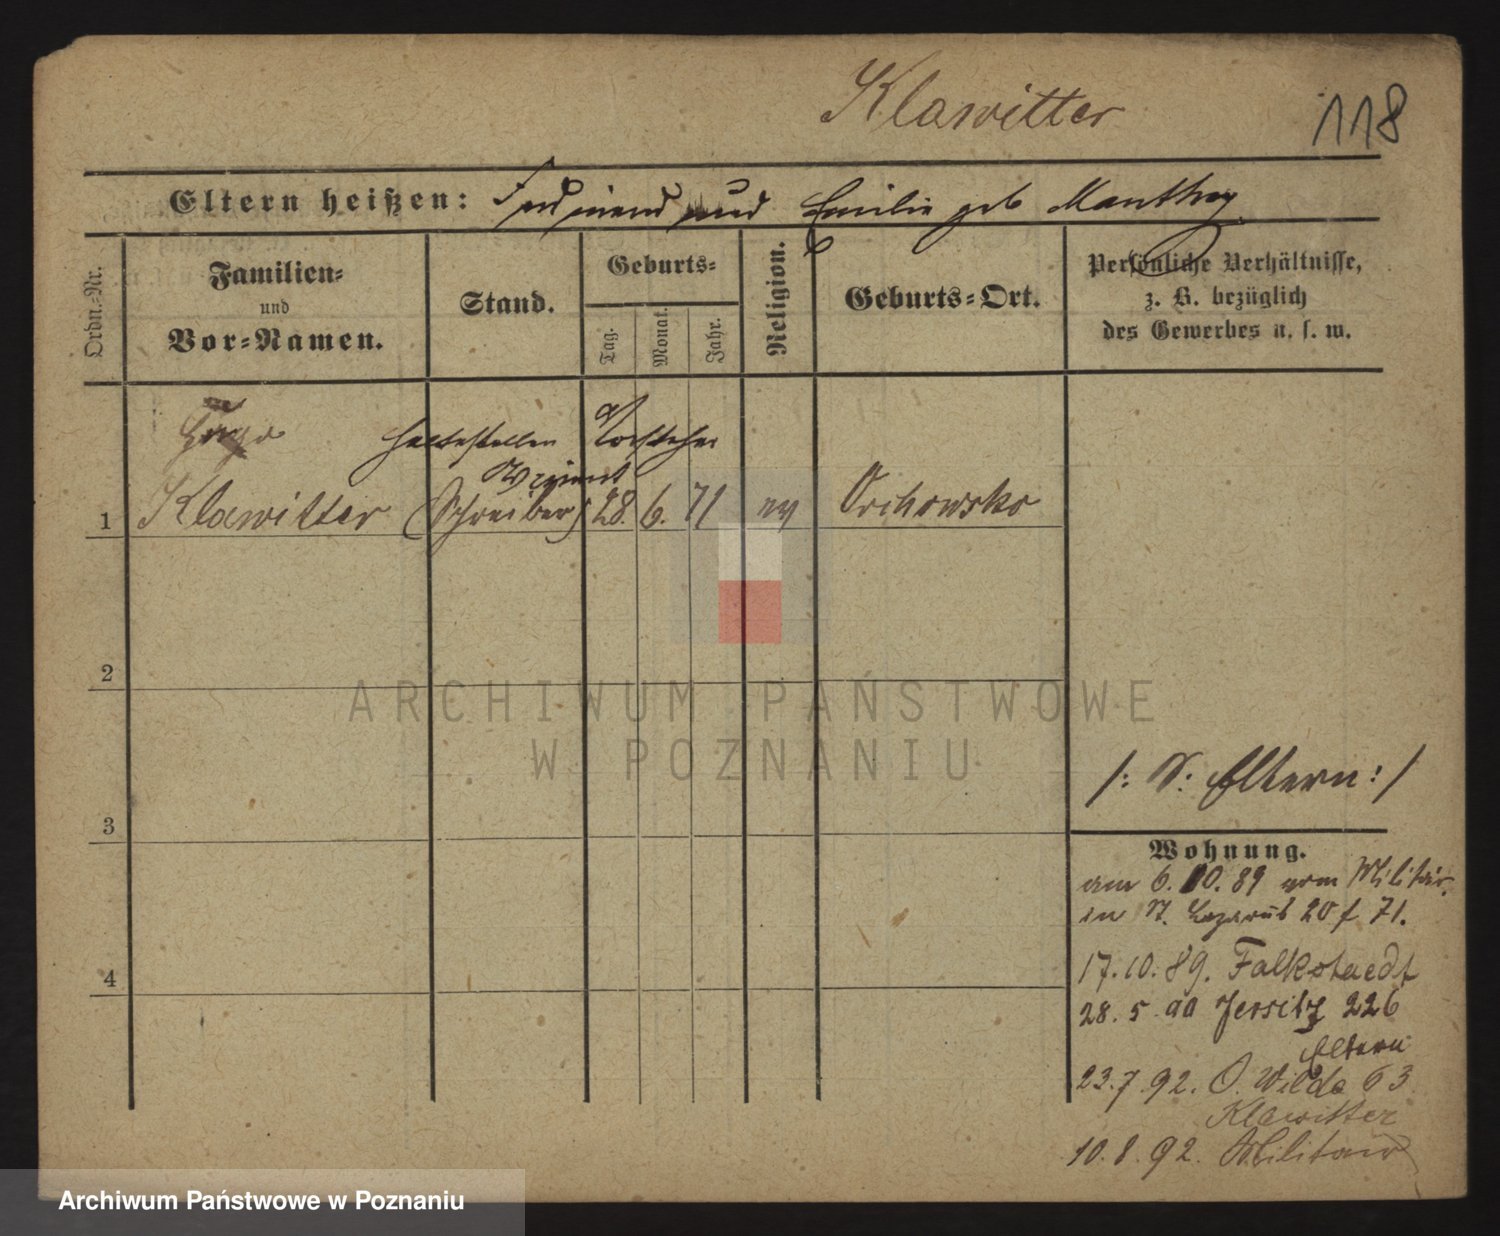 Klawitter
118
Eltern heißen: Ferdinand und Emilie geb Manthey
Ordn.-Nr.
Familien-
und
Vor-Namen.
Stand.
Geburts-
Tag.
Monat.
Jahr.
Religion.
Geburts-Ort.
Persönliche Verhältnisse,
z. B. bezüglich
des Gewerbes u. s. w.
Hugo Haltestellen Vorsteher
1 Klawitter (Schreiber) 28. 6. 71 ev Orchowsko
2
3
4
/: S: Eltern :/
Wohnung.
am 6. 10. 89 vom Militär
in St. Lazarus 20 f 71.
17. 10. 89. Falkstaedt
28. 5. 90 Jersitz 226
Eltern
23. 7. 92. O. Wilda 63
Klawitter
10. 8. 92. Militair
ARCHIWUM PAŃSTWOWE
W POZNANIU
Archiwum Państwowe w Poznaniu